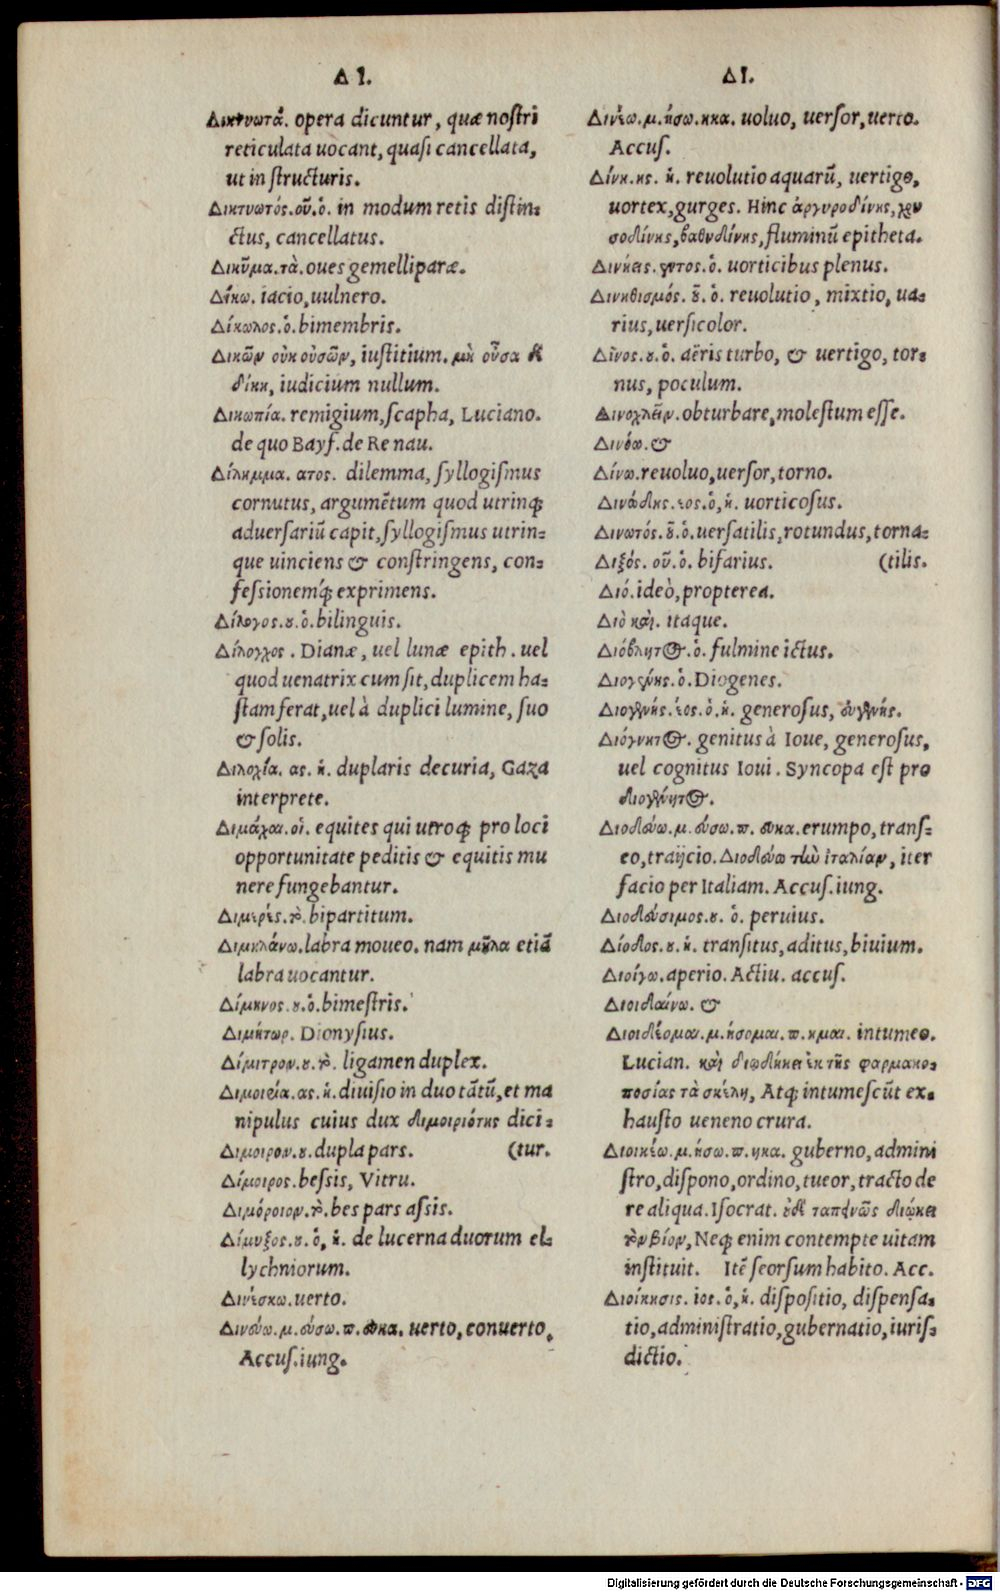 Δ Ι.
Δικτυωτά. opera dicuntur, quæ nostri
reticulata uocant, quasi cancellata,
ut in structuris.
Δικτυωτός.οῦ.ὁ. in modum retis distin-
ctus, cancellatus.
Δικῦμα.τὰ.oues gemelliparæ.
Δίκω. iacio, uulnero.
Δίκωλος.ὁ.bimembris.
Δικῶν οὐκ οὐσῶν, iustitium. μὴ οὖσα δὲ
δίκη, iudicium nullum.
Δικωπία. remigium, scapha, Luciano.
de quo Bayf. de Re nau.
Δίλημμα. ατος. dilemma, syllogismus
cornutus, argumētum quod utrinq;
aduersariū capit, syllogismus utrin-
que uinciens & constringens, con-
fessionemq́; exprimens.
Δίλογος.ȣ.ὁ.bilinguis.
Δίλογχος. Dianæ, uel lunæ epith. uel
quod uenatrix cum sit, duplicem ha-
stam ferat, uel à duplici lumine, suo
& solis.
Διλοχία. ας. ἡ. duplaris decuria, Gaza
interprete.
Διμάχαι.οἱ. equites qui utroq; pro loci
opportunitate peditis & equitis mu
nere fungebantur.
Διμερές.τὸ.bipartitum.
Διμηλάνω.labra moueo. nam μῆλα etiā
labra uocantur.
Δίμηνος.ȣ.ὁ.bimestris.
Διμήτωρ. Dionysius.
Δίμιτρον.ȣ.τὸ. ligamen duplex.
Διμοιρία.ας.ἡ.diuisio in duo tātū, et ma
nipulus cuius dux διμοιριότης dici-
Διμοιρον.ȣ.dupla pars. (tur.
Δίμοιρος.bessis, Vitru.
Διμόροιον.τὸ.bes pars assis.
Δίμυξος.ȣ.ὁ, ἡ. de lucerna duorum el-
lychniorum.
Δινέσκω.uerto.
Δινεύω.μ.εύσω.π.ευκα. uerto, conuerto,
Accus.iung.
Δ Ι.
Δινέω.μ.ήσω.ηκα. uoluo, uersor, uerto.
Accus.
Δίνη.ης. ἡ. reuolutio aquarū, uertigo,
uortex, gurges. Hinc ἀργυροδίνης, χρυ
σοδίνης, βαθυδίνης, fluminū epitheta.
Δινήεις.εντος.ὁ. uorticibus plenus.
Δινηθισμός. ȣ͂. ὁ. reuolutio, mixtio, ua-
rius, uersicolor.
Δῖνος.ȣ.ὁ. aëris turbo, & uertigo, tor-
nus, poculum.
Δινοχλεῖν.obturbare, molestum esse.
Δινόω.&
Δίνω.reuoluo, uersor, torno.
Δινώδης.εος.ὁ,ἡ. uorticosus.
Δινωτός.ȣ͂.ὁ.uersatilis, rotundus, torna-
Διξός. οῦ.ὁ. bifarius. (tilis.
Διό.ideò, propterea.
Διὸ καὶ. itaque.
Διόβλητος.ὁ. fulmine ictus.
Διογένης.ὁ.Diogenes.
Διογενής.έος.ὁ.ἡ. generosus, εὐγενής.
Διόγνητος. genitus à Ioue, generosus,
uel cognitus Ioui. Syncopa est pro
διογένητος.
Διοδεύω.μ.εύσω.π. ευκα.erumpo, trans-
eo, traijcio. Διοδεύω τὴν ἰταλίαν, iter
facio per Italiam. Accus.iung.
Διοδεύσιμος.ȣ. ὁ. peruius.
Δίοδος.ȣ.ἡ. transitus, aditus, biuium.
Διοίγω.aperio. Actiu. accus.
Διοιδαίνω. &
Διοιδέομαι.μ.ήσομαι.π.ημαι. intumeo.
Lucian. καὶ διῳδήκει ἐκ τῆς φαρμακο-
ποσίας τὰ σκέλη, Atq; intumescūt ex-
hausto ueneno crura.
Διοικέω.μ.ήσω.π.ηκα. guberno, admini
stro, dispono, ordino, tueor, tracto de
re aliqua. Isocrat. ȣ̓δὲ ταπεινῶς διῴκει
τὸν βίον, Neq; enim contempte uitam
instituit. Itē seorsum habito. Acc.
Διοίκησις. ιος.ὁ,ἡ. dispositio, dispensa-
tio, administratio, gubernatio, iuris-
dictio.
Digitalisierung gefördert durch die Deutsche Forschungsgemeinschaft - DFG